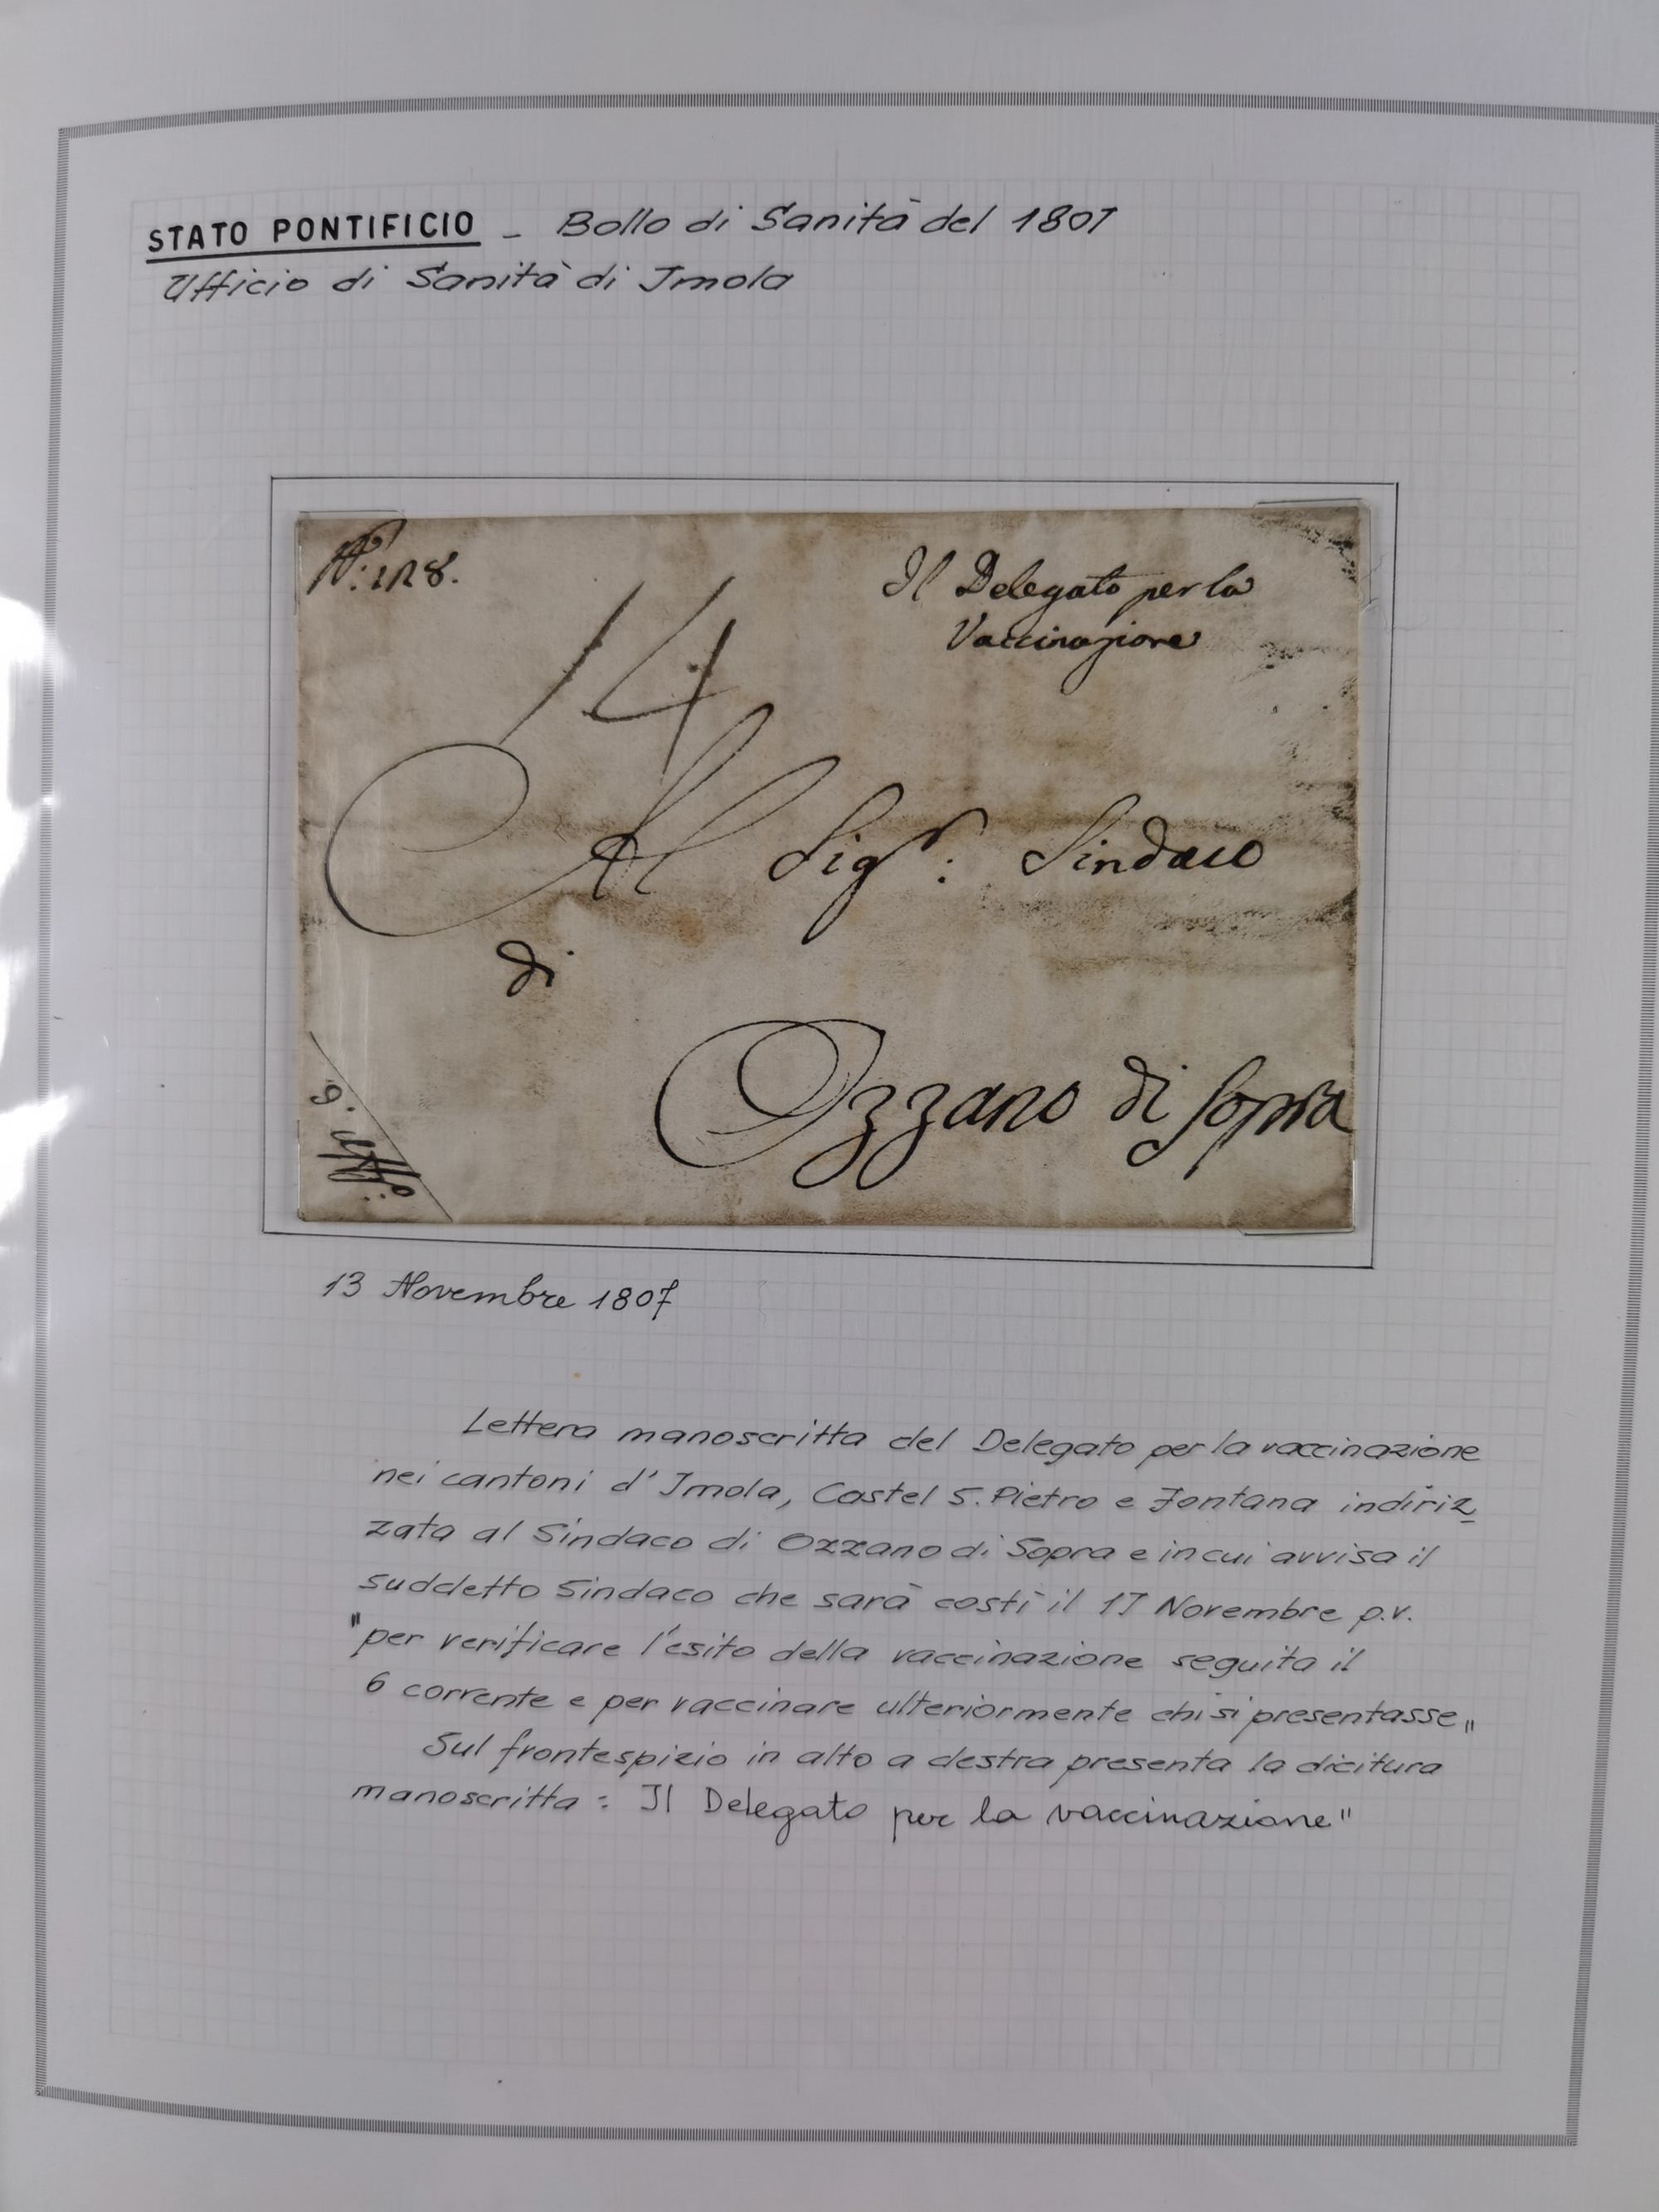 STATO PONTIFICIO - Bollo di Sanità del 1807
Ufficio di Sanità di Imola
N°: 128.
Il Delegato per la
Vaccinazione
14
Al Sigr: Sindaco
di
Ozzano di Sopra
13 Novembre 1807
Lettera manoscritta del Delegato per la vaccinazione
nei cantoni d'Imola, Castel S. Pietro e Fontana indiriz
zata al Sindaco di Ozzano di Sopra e in cui avvisa il
suddetto Sindaco che sarà costì il 17 Novembre p.v.
"per verificare l'esito della vaccinazione seguita il
6 corrente e per vaccinare ulteriormente chi si presentasse"
Sul frontespizio in alto a destra presenta la dicitura
manoscritta : Il Delegato per la vaccinazione"